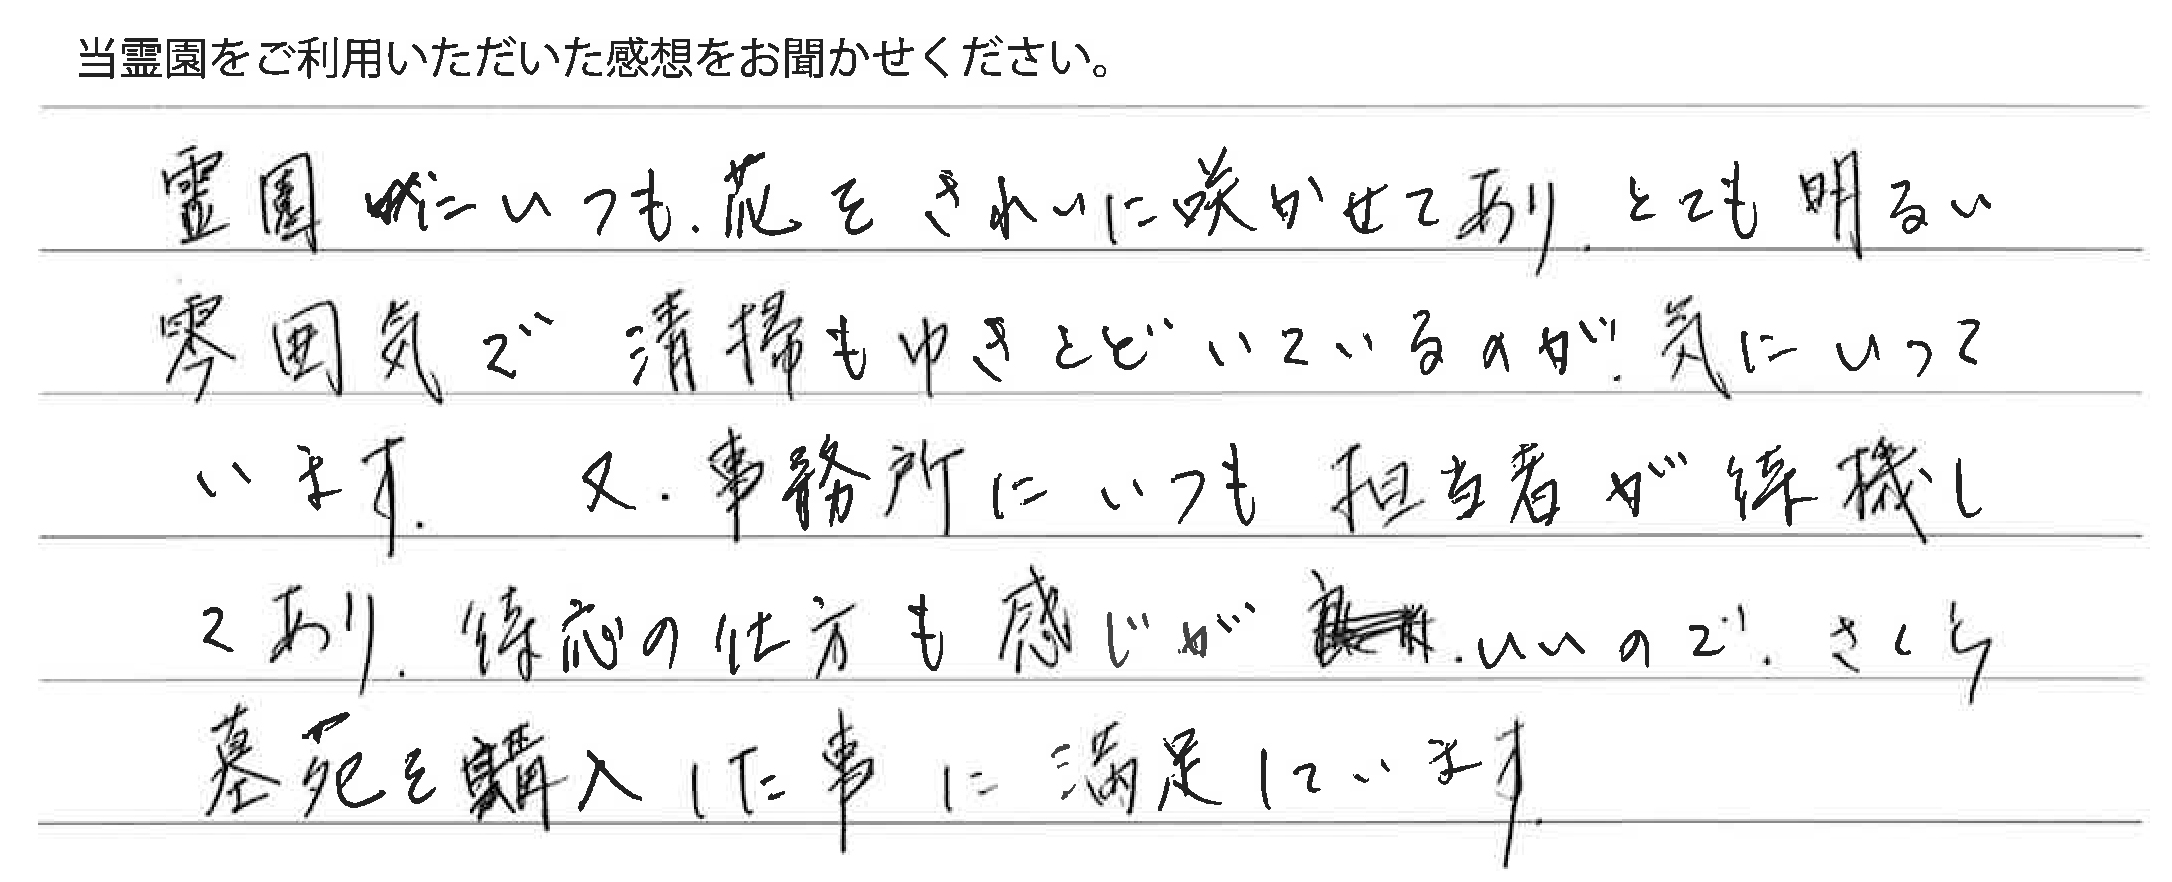 当霊園をご利用いただいた感想をお聞かせください。
霊園にいつも、花をきれいに咲かせてあり、とても明るい
雰囲気で 清掃もゆきとどいているのが、気にいって
います。 又、事務所にいつも担当者が待機し
てあり、待応の仕方も感じが、いいので、さくら
墓苑を購入した事に満足しています。